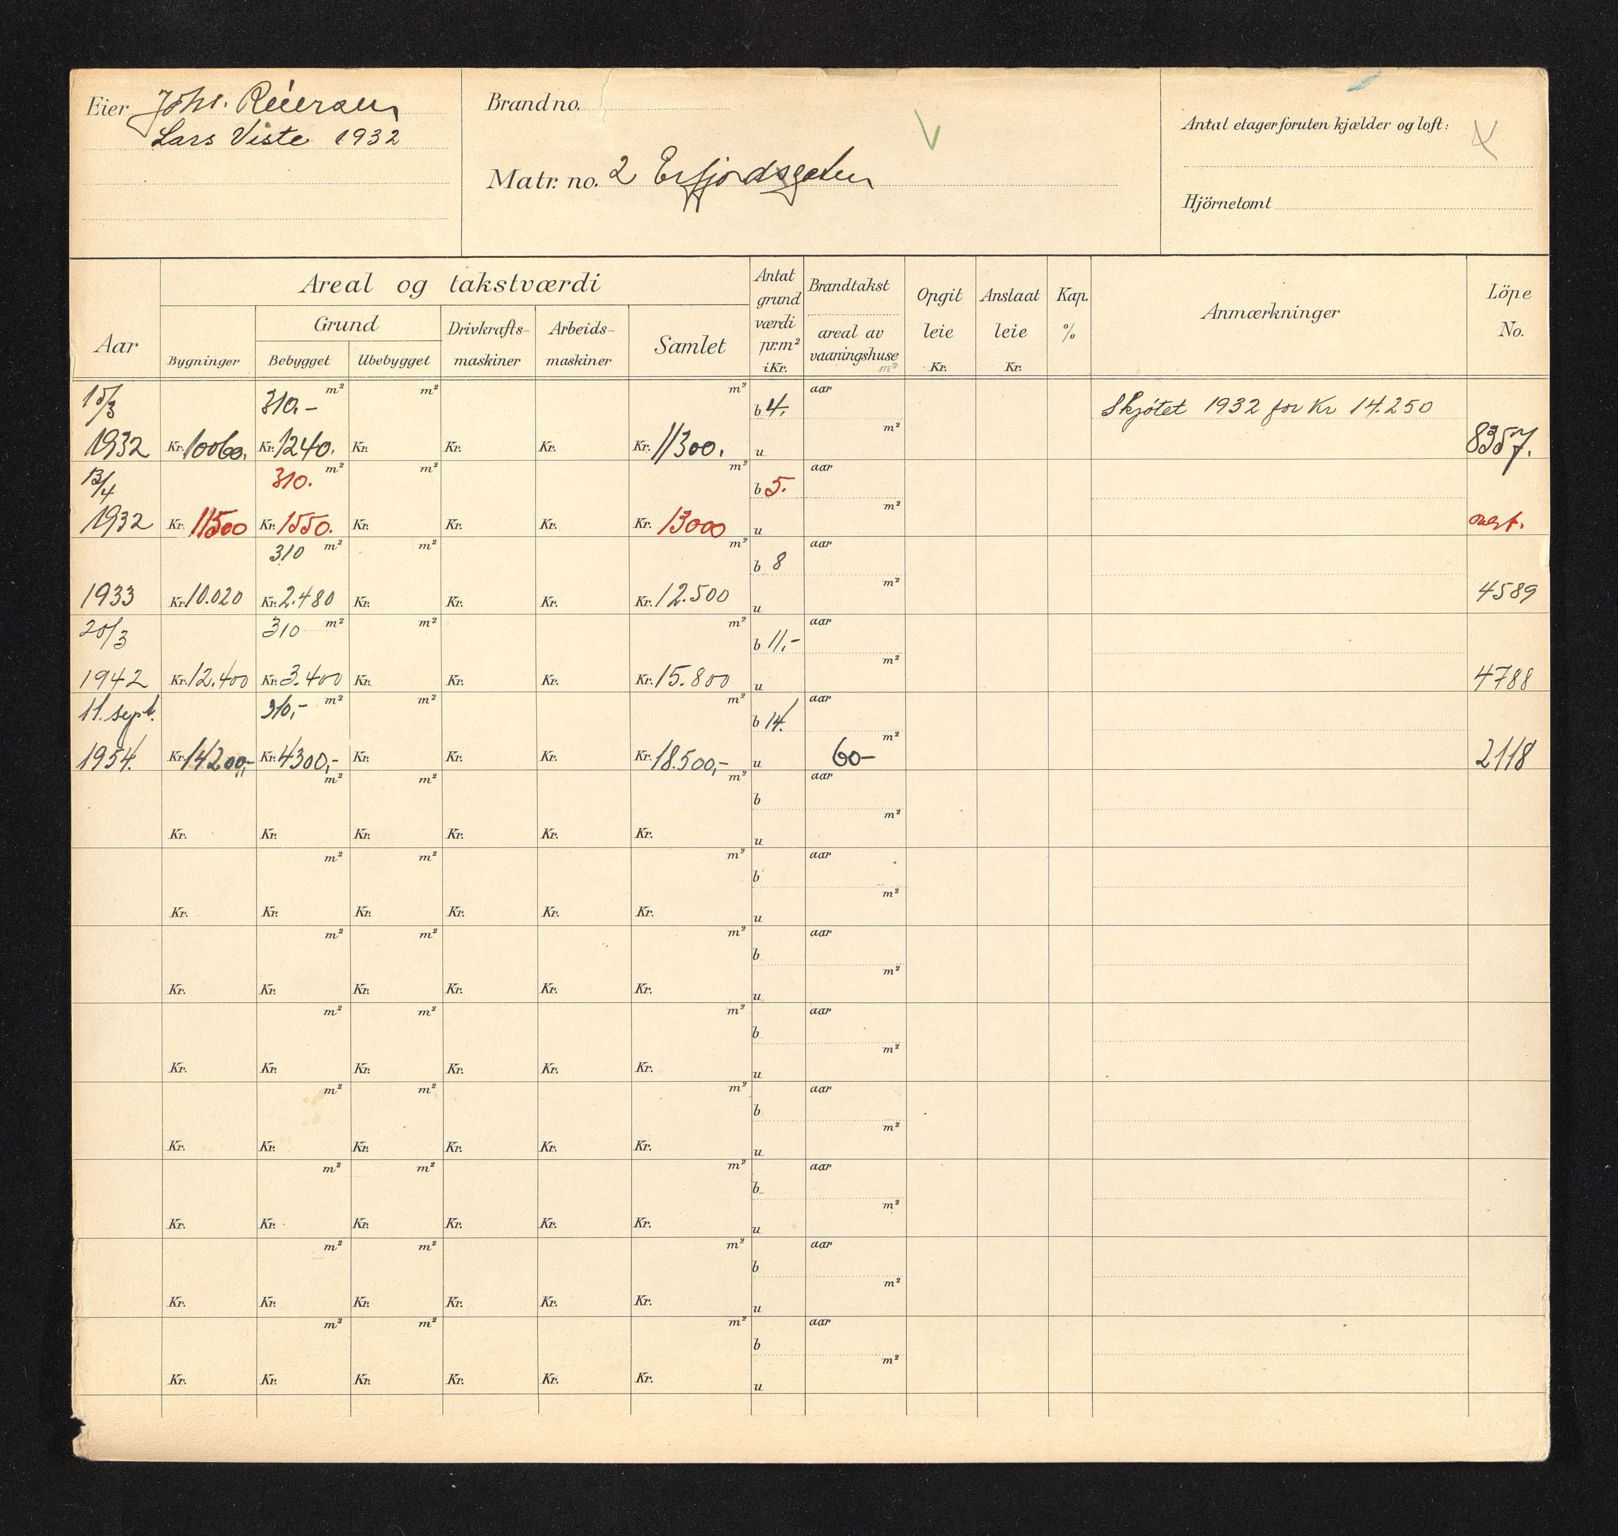 Eier Johs. Reiersen
Lars Viste 1932
Brand no.
Matr. no. 2 Erfjordsgaten
V
Antal etager foruten kjælder og loft:
Hjörnetomt
Aar
Areal og takstværdi
Bygninger
Grund
Bebygget Ubebygget
Drivkrafts-
maskiner
Arbeids-
maskiner
Samlet
Antat
grund
værdi
pr.m²
i Kr.
Brandtakst
areal av
vaaningshuse
m²
Opgit
leie
Kr.
Anslaat
leie
Kr.
Kap.
%
Anmærkninger
Löpe
No.
15/3 310.- m² m² m² b 4. aar Skjøtet 1932 for Kr 14.250
1932 Kr. 10060. Kr. 1240. Kr. Kr. Kr. Kr. 11300. u m² 8357.
13/4 310. m² m² m² b 5. aar
1932 Kr. 11500 Kr. 1550. Kr. Kr. Kr. Kr. 13000 u m²
310 m² m² m² b 8 aar
1933 Kr. 10.020 Kr. 2.480 Kr. Kr. Kr. Kr. 12.500 u m² 4589
20/3 310 m² m² m² b 11,- aar
1942 Kr. 12.400 Kr. 3.400 Kr. Kr. Kr. Kr. 15.800 u m² 4788
11. sept. 310,- m² m² m² b 14. aar
1954. Kr. 14200,- Kr. 4300,- Kr. Kr. Kr. Kr. 18.500,- u 60- m² 2118
m² m² m² b aar
Kr. Kr. Kr. Kr. Kr. Kr. u m²
m² m² m² b aar
Kr. Kr. Kr. Kr. Kr. Kr. u m²
m² m² m² b aar
Kr. Kr. Kr. Kr. Kr. Kr. u m²
m² m² m² b aar
Kr. Kr. Kr. Kr. Kr. Kr. u m²
m² m² m² b aar
Kr. Kr. Kr. Kr. Kr. Kr. u m²
m² m² m² b aar
Kr. Kr. Kr. Kr. Kr. Kr. u m²
m² m² m² b aar
Kr. Kr. Kr. Kr. Kr. Kr. u m²
m² m² m² b aar
Kr. Kr. Kr. Kr. Kr. Kr. u m²